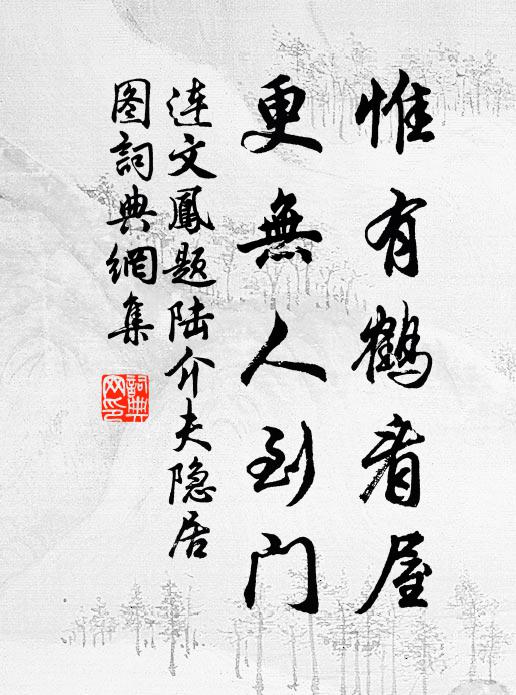 惟有鶴看屋
更無人到門
連文鳳題陆介夫隐居
图詞典網集
詞典网印